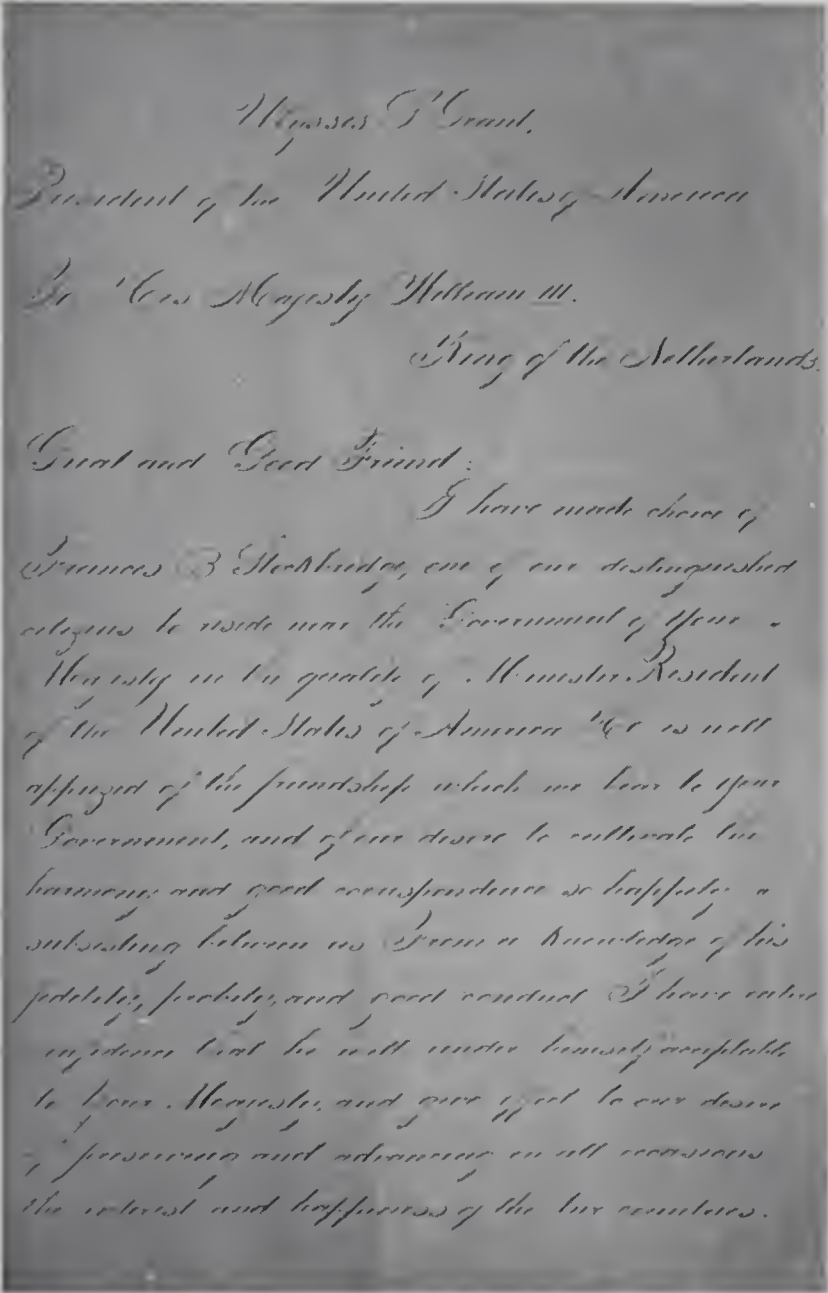 Ulysses S Grant,
President of the United States of America
To His Majesty William III.
King of the Netherlands.
Great and Good Friend:
I have made choice of
Francis B Stockbridge, one of our distinguished
citizens to reside near the Government of Your
Majesty in the quality of Minister Resident
of the United States of America He is well
apprized of the friendship which we bear to your
Government, and of our desire to cultivate the
harmony and good correspondence so happily
subsisting between us From a knowledge of his
fidelity, probity, and good conduct I have entire
confidence that he will render himself acceptable
to Your Majesty, and give effect to our desire
of preserving and advancing on all occasions
the interest and happiness of the two countries.